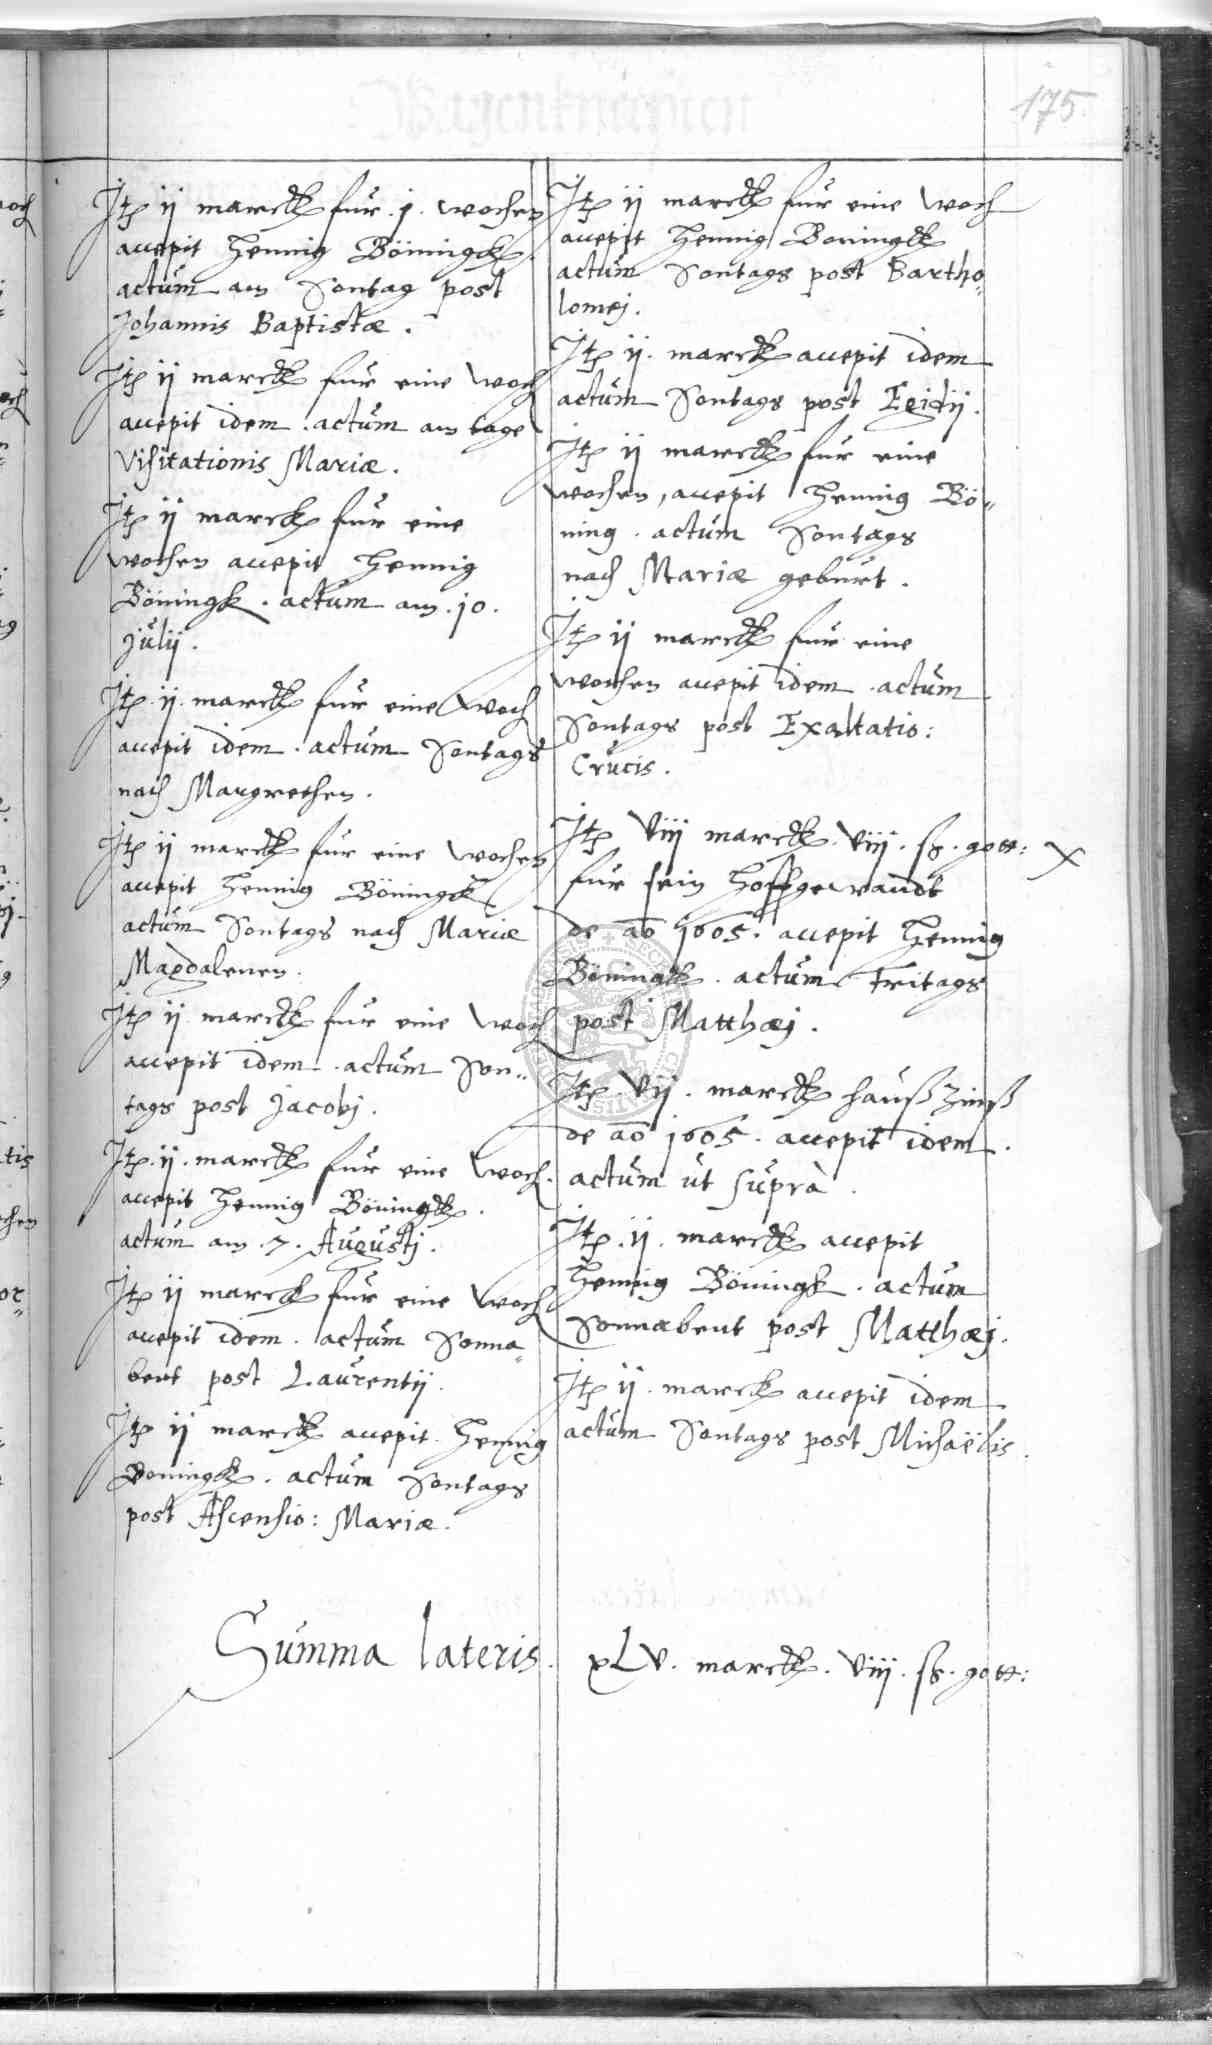 175.
Itp ij marck fur .j. wochen
accepit Hennig Böningck
actum am Sontag post
Johannis Baptistæ.
Itp ij marck fur eine woch
accepit idem. actum am tage
Visitationis Mariæ.
Itp ij marck fur eine
wochen accepit Hennig
Böningk. actum am .10.
Julij.
Itp .ij. marck fur eine woch
accepit idem. actum Sontags
nach Margrethen.
Itp ij marck fur eine wochen
accepit Hennig Böningck
actum Sontags nach Mariæ
Magdalenen.
Itp ij marck fur eine woch
accepit idem. actum Son„
tags post Jacobj.
Itp .ij. marck fur eine woch.
accepit Hennig Böningck.
actum am .7. Augustj.
Itp ij marck fur eine woch
accepit idem. actum Sonna„
bent post Laurentij.
Itp ij marck accepit Hennig
Boningck. actum Sontags
post Ascensio: Mariæ.
Itp ij marck fur eine woch
accepit Hennig Boningck
actum Sontags post Bartho„
lomej.
Itp ij. marck accepit idem
actum Sontags post Egidij.
Itp ij marck fur eine
wochen, accepit Hennig Bö„
ning. actum Sontags
nach Mariæ geburt.
Itp ij marck fur eine
wochen accepit idem. actum
Sontags post Exaltatio:
Crucis.
Itp Viij marck. Viij. ß. gott: X
fur sein Hoffgewandt
de ao 1605. accepit Hennig
Böningk. actum Fritags
post Matthæj.
Itp .Vij. marck hauß Zinß
de ao 1605. accepit idem.
actum ut suprà.
Itp .ij. marck accepit
Hennig Böningk. actum
Sonnabent post Matthæj.
Itp ij. marck accepit idem
actum Sontags post Michaëlis.
Summa lateris. xLv. marck. Viij. ß. gott: